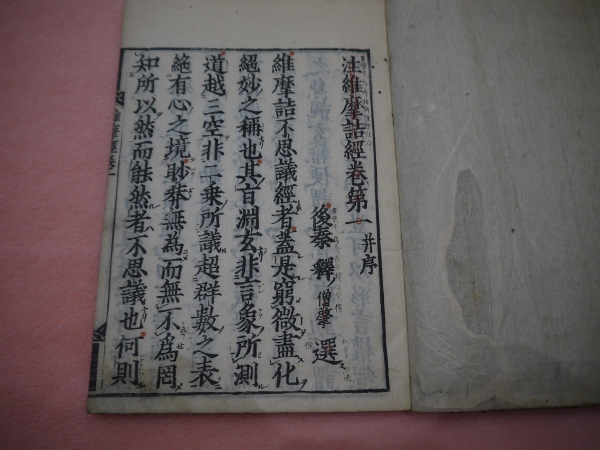 注維摩詰經卷第一 并序
後秦 釋 僧肇 選
維摩詰不思議經者蓋是窮微盡化
絕妙之稱也其旨淵玄非言象所測
道越三空非二乗所議超群數之表
絶有心之境眇莾無為而無不為罔
知所以然而能然者不思議也何則
維摩經卷一